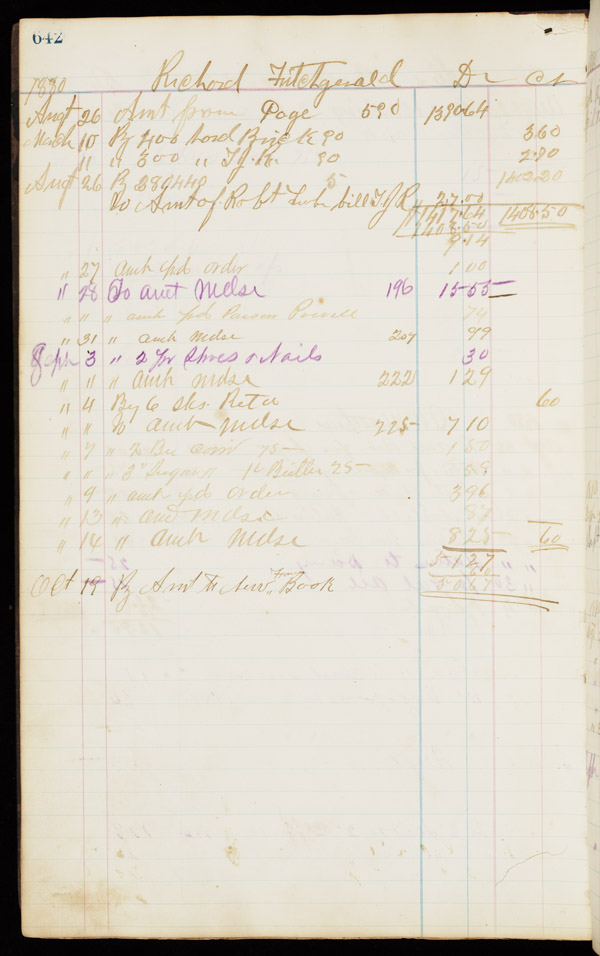 642
1880 Richard Fitchgerald Dr Cr
Augt 26 Amt from Page 590 1390.64
March 10 By 400 hard Brick 90 3.60
" " 300 " T.J.R. 90 2.70
Augt 26 By 5 1402.20
To Amt of Robt bill T.J.R. 27.00
1417.64 1408.50
1408.50
9.14
" 27 amt pd order 1 00
" 28 To amt Mdse 196 15 55
" " " amt pd Parson Powell 74
" 31 " amt Mdse 207 99
Sept 3 " 2 pr Shoes & Nails 30
" " " amt Mdse 222 1 29
" 4 By 6 sks. Retd 60
" " To amt Mdse 225 7 10
" 7 " 75 1 50
" " " Sugar " Butter 25
" 9 " amt pd order 3 96
" 13 " amt Mdse
" 14 " amt Mdse 8 25 60
51 27
Oct 19 By Amt to New Book 50 67